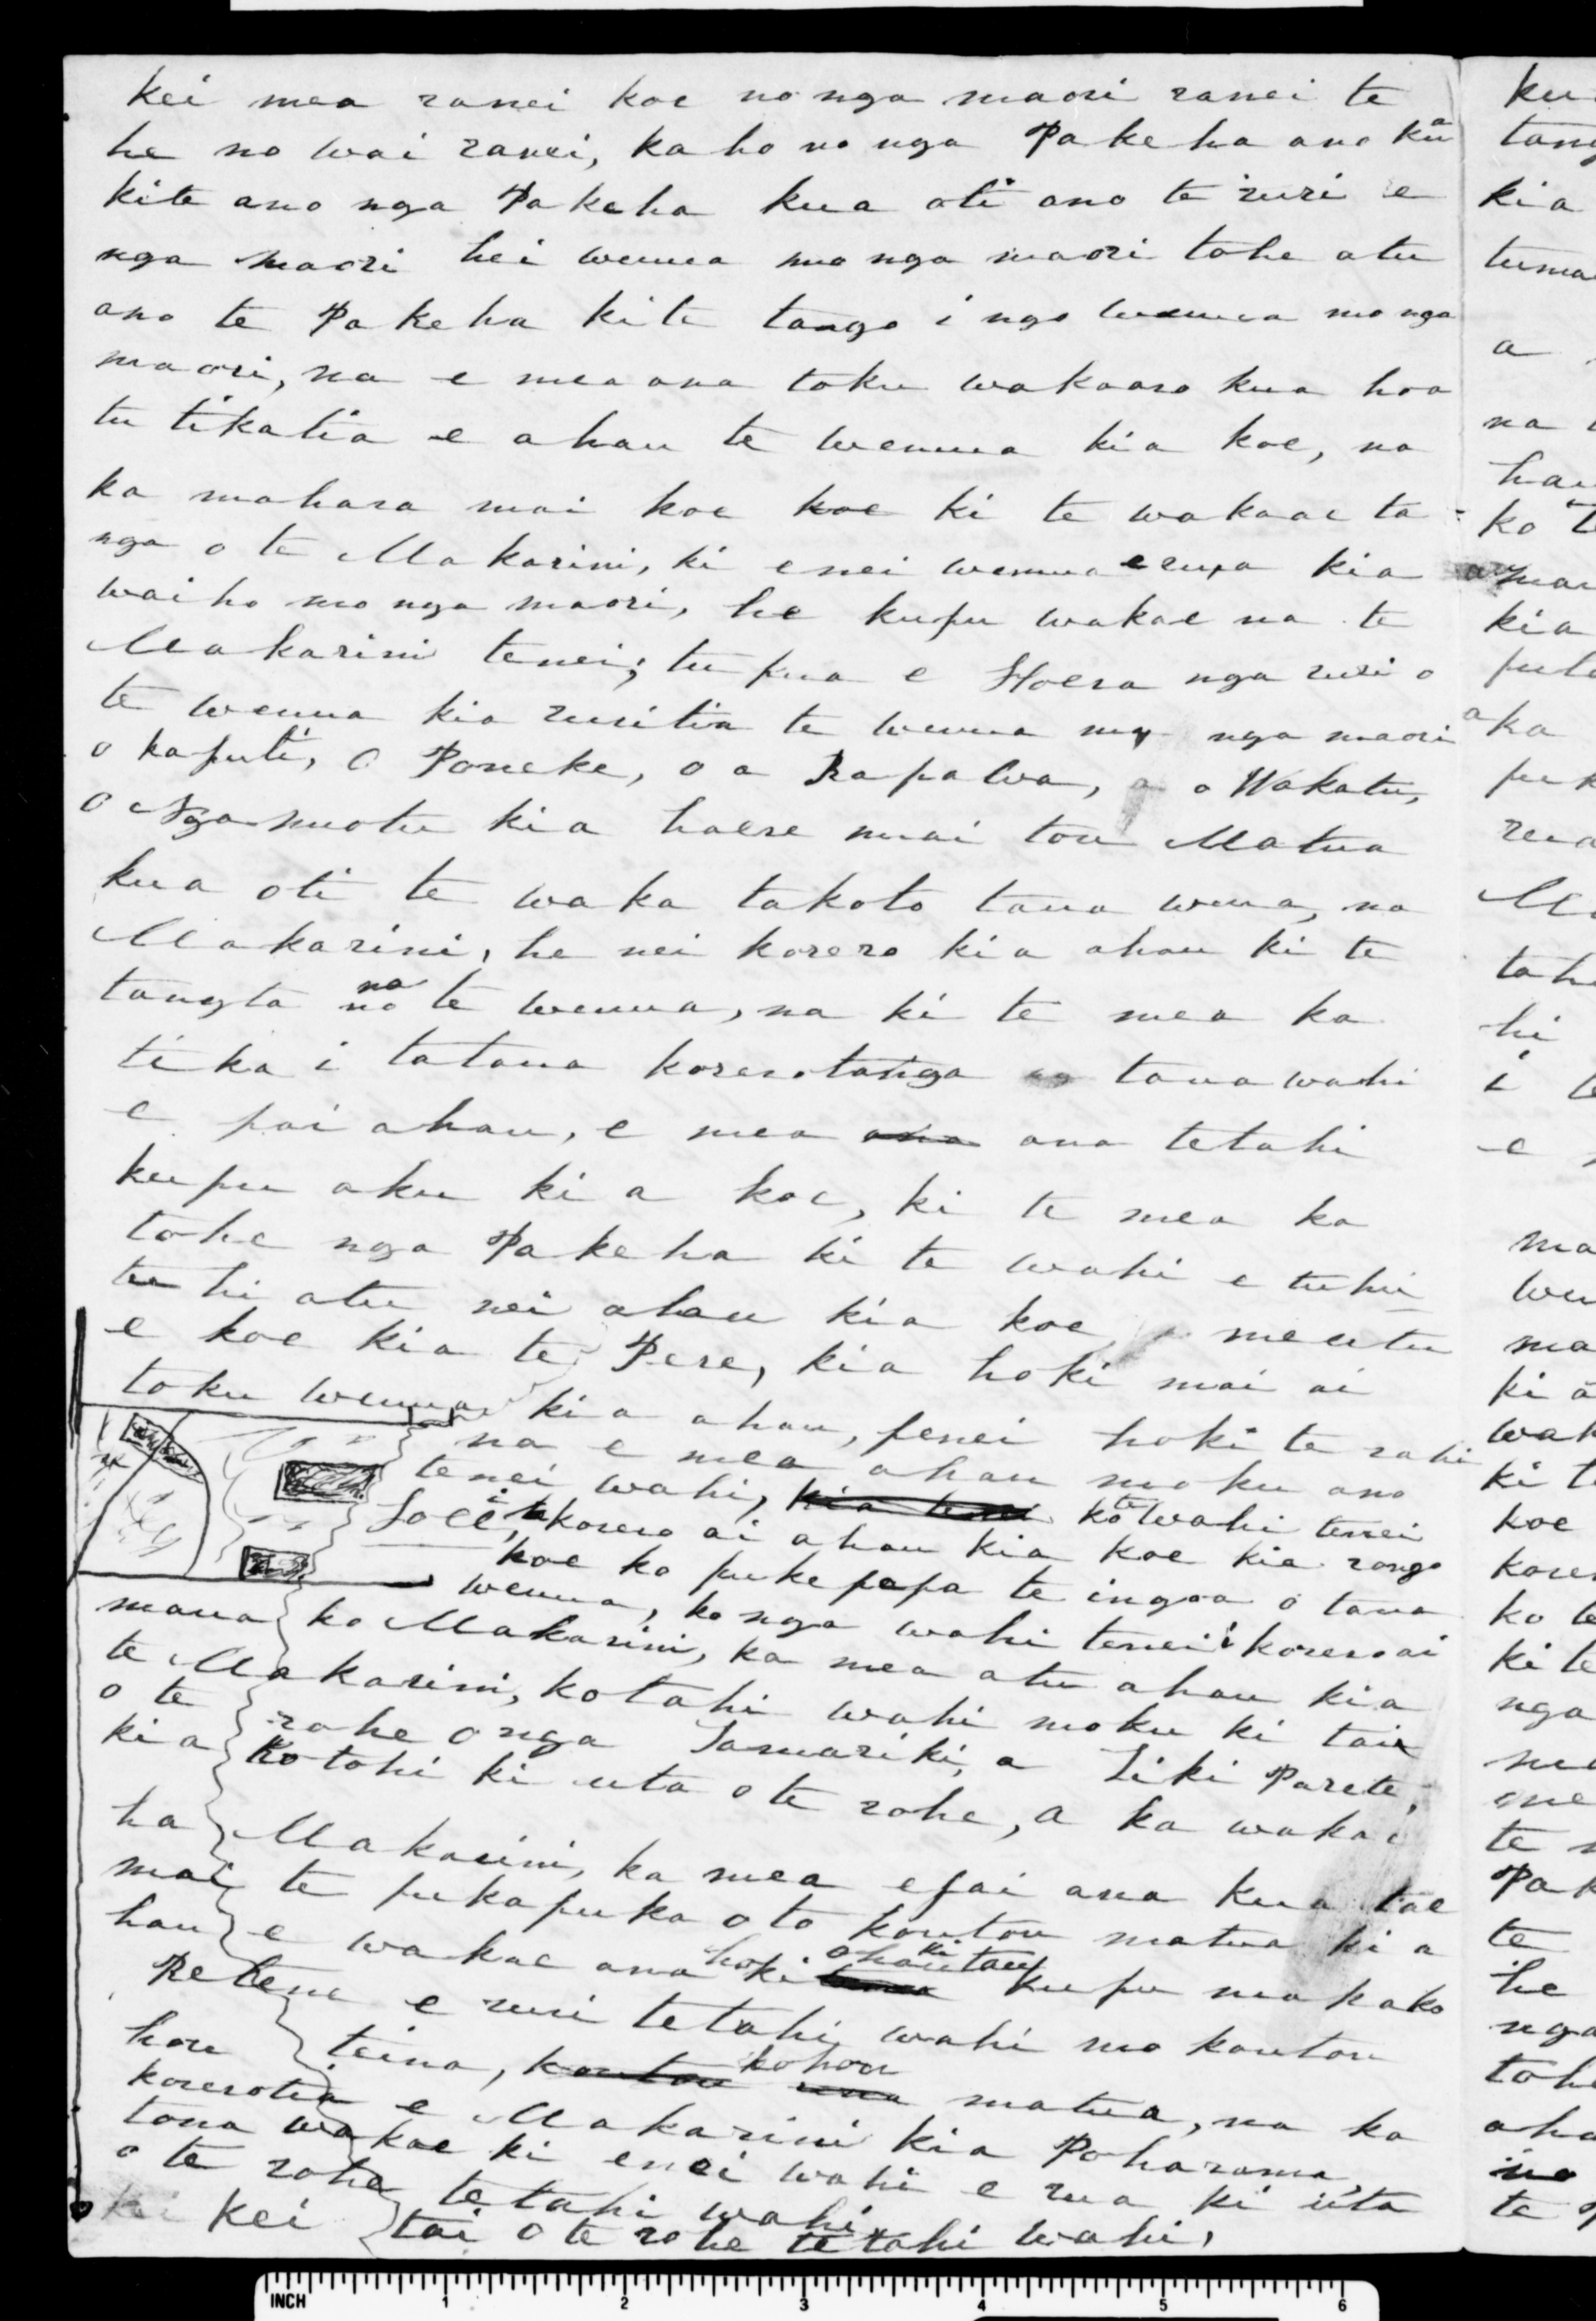 kei mea ranei koe no nga maori ranei te
he no wai ranei, kaho no nga Pakeha ano kua
kite ano nga Pakeha kua oti ano te ruri e
nga maori hei wenua mo nga maori tohe atu
ano te Pakeha kite tango i nga wenua mo nga
maori, na e mea ana toku wakaaro kua hoa
tu tikatia e ahau te wenua kia koe, na
ka mahara mai koe koe ki te wakaae ta-
nga o te Makarini, ki enei wenua erua kia
waiho mo nga maori, he kupu wakae na te
Makarini tenei; tu pua e Hoera nga ruri o
te wenua kia ruritia te wenua mo nga maori
o kaputi, O Poneke, o a Rapawa, a o Wakatu,
o Nga-muotu kia haere mai tou Matua
kua oti te waka takoto taua wenua, na
Makarini, he nei korero kia ahau ki te
tangta na no te wenua, na ki te mea ka
tika i tatana korerotanga taua wahi
e pai ahau, e mea ana ana tetahi
kupu aku ki a koe, ki te mea ka
tohe nga Pakeha ki te wahi e tuhi
tu hi atu nei ahau kia koe, meatu
e koe kia te Pere, kia hoki mai ai
toku wenua ki a ahau, penei hoki te rahi
na e mea ahau moku ano
tenei wahi, kia tenei ko te wahi tenei
i korero ai ahau kia koe kia rongo
koe ko pukepapa te ingoa o taua
wenua, ko nga wahi tenei i korero ai
maua ko Makarini, ka mea atu ahau kia
te Makarini, kotahi wahi moku ki tai
o te rohe o nga Tamariki, a Tiki Parete,
kia kotahi ki uta o te rohe, a ka wakae
ha Makarini, ka mea epai ana kua tae
mai te pukapuka o to koutou matua ki a
hau e wakae ana hoki ahau ki tau kupu ma kako
Retene e ruri tetahi wahi mo koutou
hou teina, koutou kohou matua, na ka
korerotia e Makarini kia Poharama,
tona wakae ki enei wahi e rua ki uta
o te rohe tetahi wahi
kei kei tai o te rohe tetahi wahi,